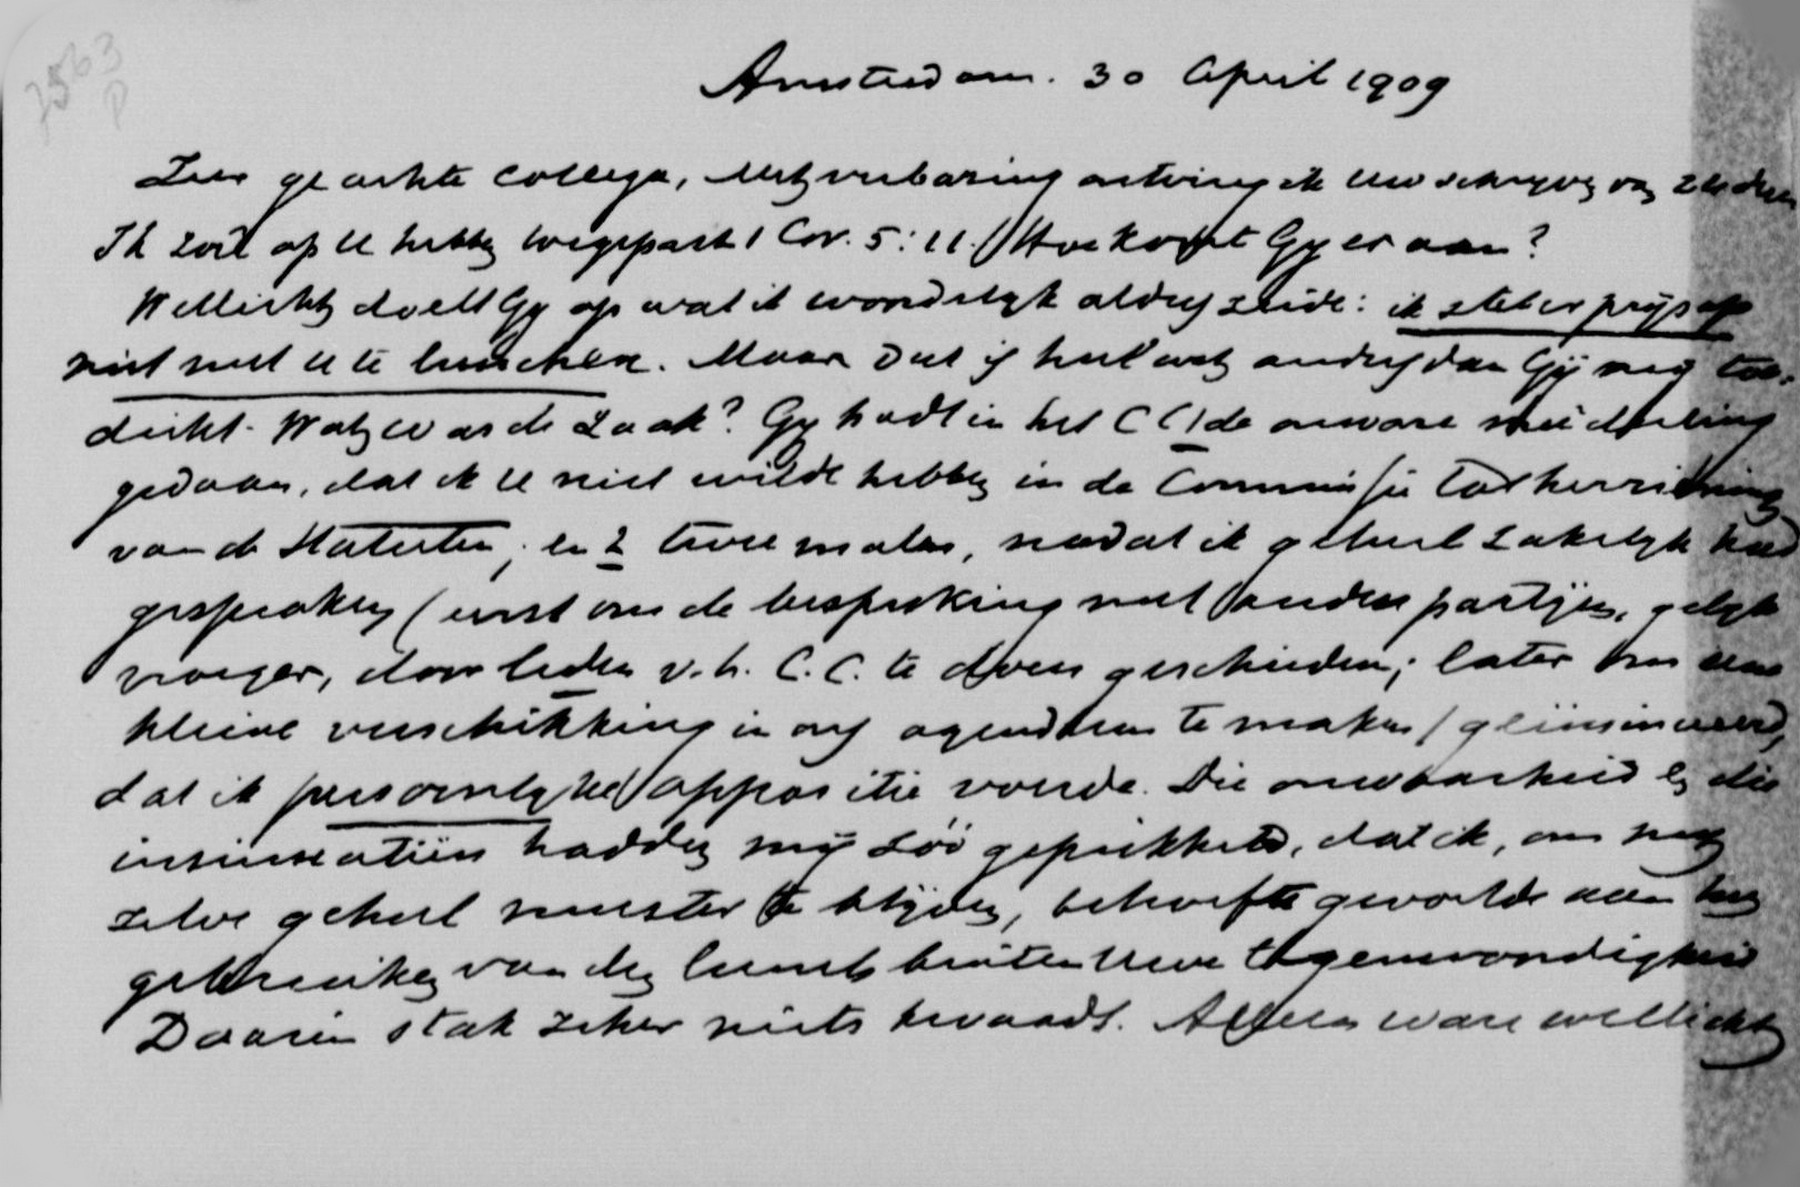 7563
P
Amsterdam. 30 April 1909
Zeer geachte Collega, Met verbazing ontving ik Uw schrijven van
Ik zou op U hebben toegepast 1 Cor. 5:11. Hoe komt Gy er aan?
Wellicht doelt Gy op wat ik wondelyk aldus zeide: ik stel er prijs op
niet met U te lunchen. Maar dat is heel wat anders dan Gij mij toe-
dicht. Wat was de zaak? Gy hadt in het CC de onware mededeeling
gedaan, dat ik U niet wilde hebben in de Commissie tot herziening
van de Statuten; en 2 twee malen, nadat ik geheel zakelyk had
gesproken (eerst om de bespreking met andere partijen, gelyk
vroeger, door leden v. h. C.C. te doen geschieden; later om een
kleine verschikking in ons agendum te maken) geïnsinueerd,
dat ik persoonlyke oppositie voerde. Die onwaarheid en die
insinuatiën hadden mij zóó geprikkeld, dat ik, om mij
zelve geheel meester te blijven, behoefte gevoelde aan het
gebruiken van den lunch buiten Uwe tegenwoordigheid
Daarin stak zeker niets kwaads. Alleen ware wellicht